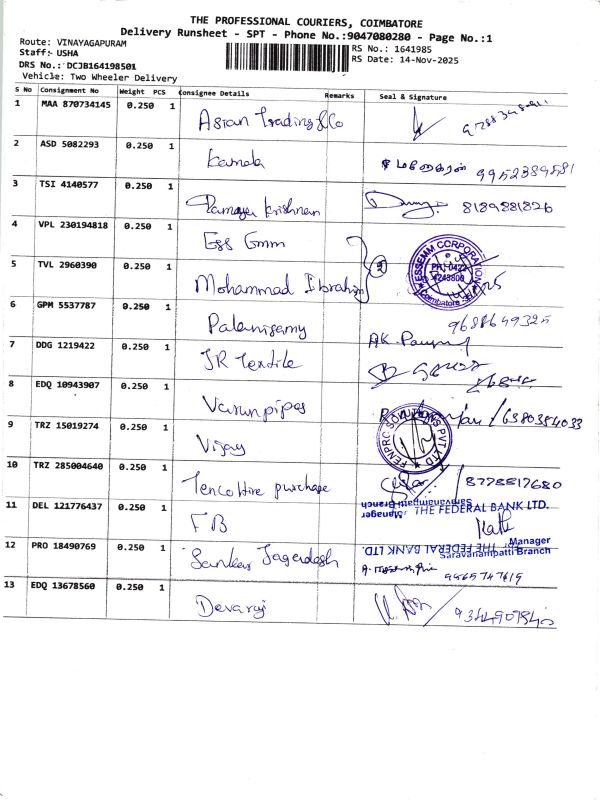 THE PROFESSIONAL COURIERS, COIMBATORE
Delivery Runsheet - SPT - Phone No.:9047080280 - Page No.:1
Route: VINAYAGAPURAM
Staff: USHA
DRS No.: DCJB164198501
Vehicle: Two Wheeler Delivery
RS No.: 1641985
RS Date: 14-Nov-2025
S No Consignment No Weight PCS Consignee Details Remarks Seal & Signature
1 MAA 870734145 0.250 1 Asian Trading & Co
2 ASD 5082293 0.250 1 Kamala மனோகரன் 9952389581
3 TSI 4140577 0.250 1 Ramaya Krishnan 8189881826
4 VPL 230194818 0.250 1 Ess Emm
ESSEMM CORPORATION
PH: 0422
4243800
Coimbatore
5 TVL 2960390 0.250 1 Mohammad Ibrahim 2
6 GPM 5537787 0.250 1 Palanisamy 9688649325
7 DDG 1219422 0.250 1 JR Textile
8 EDQ 10943907 0.250 1 Varun pipes 6380384033
9 TRZ 15019274 0.250 1 Vijay
FENPRO SOLUTIONS PVT LTD
10 TRZ 285004640 0.250 1 Tencohire purchase 8778817680
11 DEL 121776437 0.250 1 FB
Saravanampatti Branch
Manager
for THE FEDERAL BANK LTD.
Manager
Saravanampatti Branch
For THE FEDERAL BANK LTD.
12 PRO 18490769 0.250 1 Sankar Jagerdosh 9865747619
13 EDQ 13678560 0.250 1 Devaraj